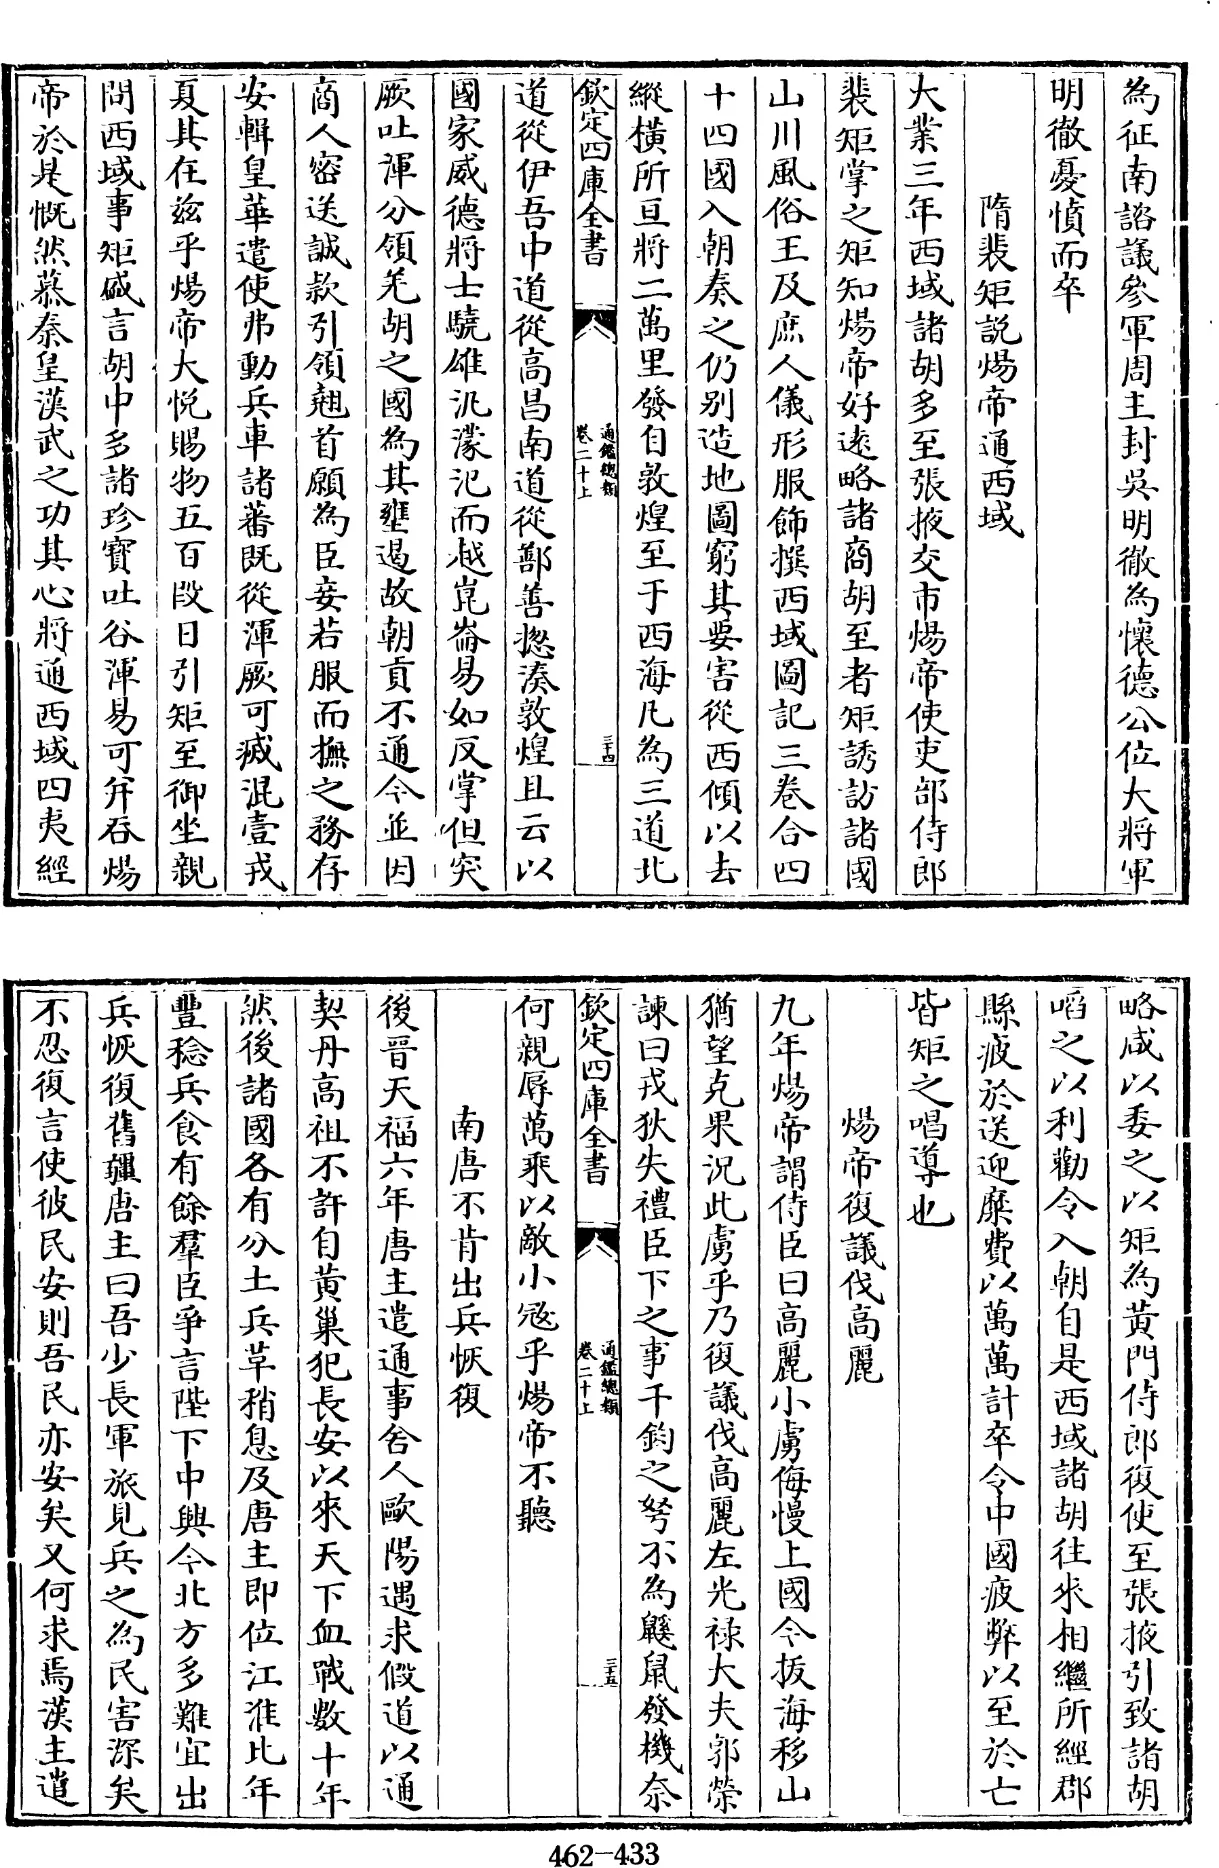 為征南諮議參軍周主封吳明徹為懷德公位大將軍
明徹憂憤而卒
隋裴矩説煬帝通西域
大業三年西域諸胡多至張掖交市煬帝使吏部侍郎
裴矩掌之矩知煬帝好逺略諸商胡至者矩誘訪諸國
山川風俗王及庶人儀形服飾撰西域圖記三卷合四
十四國入朝奏之仍别造地圖窮其要害從西傾以去
縱横所亘將二萬里發自敦煌至于西海凡為三道北
欽定四庫全書
通鑑總類
卷二十上
三十四
道從伊吾中道從高昌南道從鄯善揔湊敦煌且云以
國家威德將士驍雄汎濛汜而越崑崙易如反掌但突
厥吐渾分領羌胡之國為其壅遏故朝貢不通今並因
商人密送誠款引領翹首願為臣妾若服而撫之務存
安輯皇華遣使弗動兵車諸蕃既從渾厥可滅混壹戎
夏其在兹乎煬帝大悦賜物五百段日引矩至御坐親
問西域事矩盛言胡中多諸珍寶吐谷渾易可并吞煬
帝於是慨然慕秦皇漢武之功其心將通西域四夷經
略咸以委之以矩為黄門侍郎復使至張掖引致諸胡
啗之以利勸令入朝自是西域諸胡往來相繼所經郡
縣疲於送迎糜費以萬萬計卒令中國疲弊以至於亡
皆矩之唱導也
煬帝復議伐高麗
九年煬帝謂侍臣曰高麗小虜侮慢上國今拔海移山
猶望克果況此虜乎乃復議伐高麗左光禄大夫郭榮
諫曰戎狄失禮臣下之事千鈞之弩不為鼷鼠發機奈
欽定四庫全書
通鑑總類
卷二十上
三十五
何親辱萬乘以敵小冦乎煬帝不聽
南唐不肯出兵恢復
後晉天福六年唐主遣通事舍人歐陽遇求假道以通
契丹高祖不許自黄巢犯長安以來天下血戰數十年
然後諸國各有分土兵革稍息及唐主即位江淮比年
豐稔兵食有餘羣臣爭言陛下中興今北方多難宜出
兵恢復舊疆唐主曰吾少長軍旅見兵之為民害深矣
不忍復言使彼民安則吾民亦安矣又何求焉漢主遣
462-433